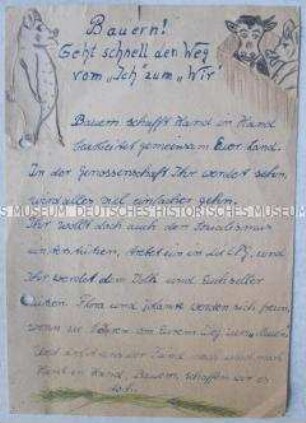 Bauern!
Geht schnell den Weg
vom „Ich" zum „Wir"
Bauern schafft Hand in Hand
bearbeitet gemeinsam Euer Land.
In der Genossenschaft Ihr werdet sehn,
wird alles viel einfacher gehn.
MUSEUM DEUTSCHES HISTORISCHES MUSEUM
Ihr wollt doch auch den Sozialismus
unterstützen, tretet ein in die LPG, und
Ihr werdet dem Volk und Euch selber
nützen. Flora und Jolante werden sich freun,
wenn sie hören von Eurem
und
Hand in Hand, Bauern, schaffen wir es